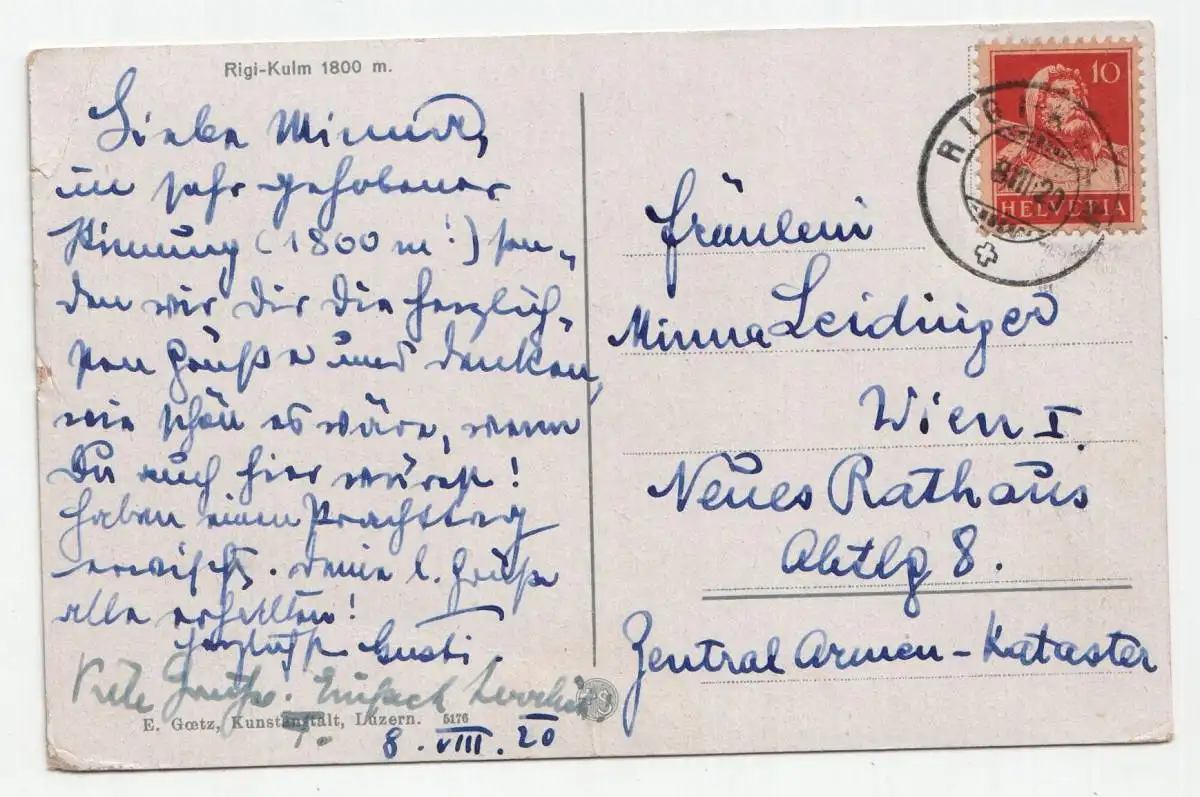 Rigi-Kulm 1800 m.
Liebe Minna,
in sehr gehobener
Stimmung (1800 m!) sen„
den wir Dir die herzlich„
sten Grüße und denken,
wie schön es wäre, wenn
Du auch hier wärest!
Haben einen Prachttag
erwischt. Deine l. Grüße
alle erhalten!
Herzlichst Gusti
Viele Grüße. Einfach herrlich
E. Gœtz, Kunstanstalt, Luzern. 5176
8. VIII. 20
10
HELVETIA
RIGI
8 VIII 20
Fräulein
Minna Leidinger
Wien I.
Neues Rathaus
Abtlg 8.
Zentral Armen-Kataster